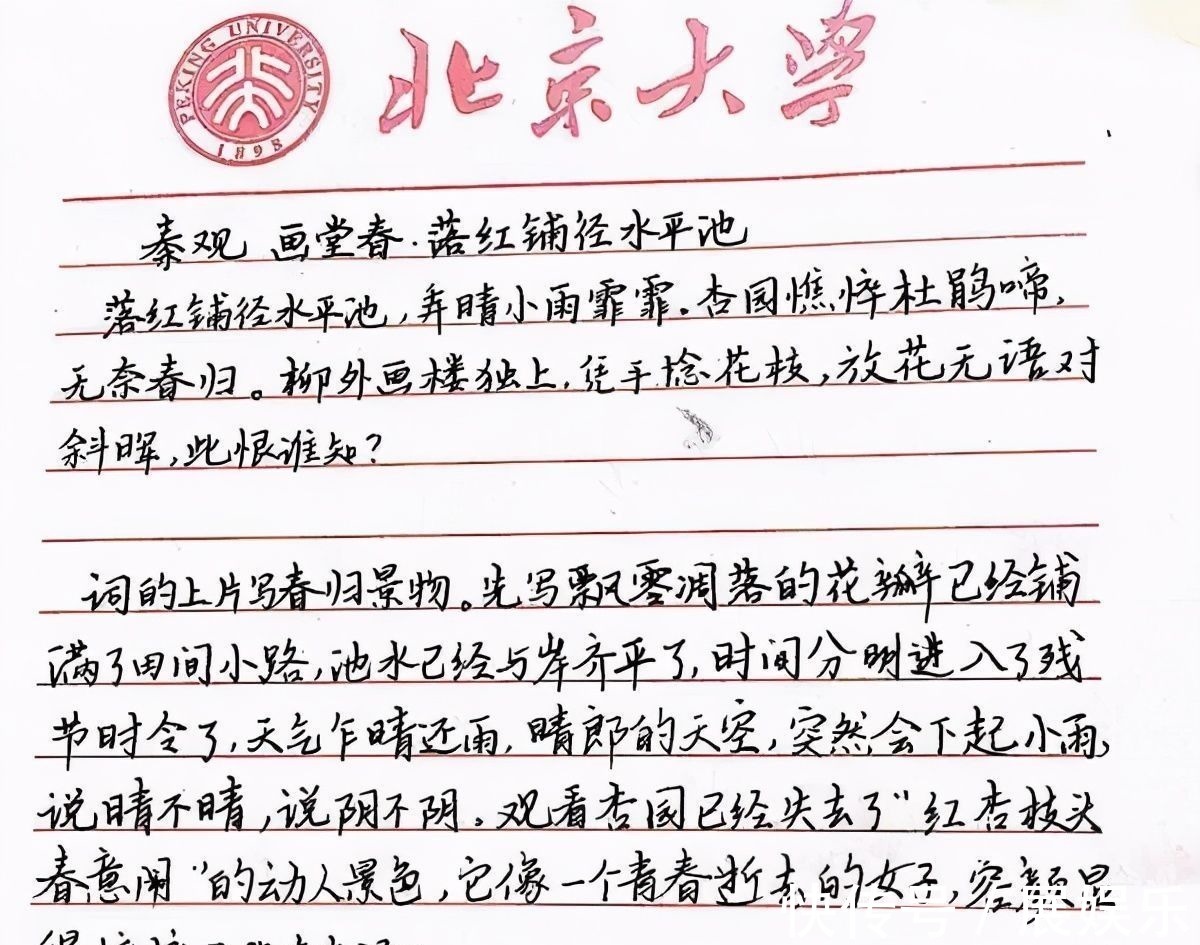 PEKING UNIVERSITY
1898
北京大学
秦观 画堂春·落红铺径水平池
落红铺径水平池,弄晴小雨霏霏。杏园憔悴杜鹃啼,
无奈春归。柳外画楼独上,凭手捻花枝,放花无语对
斜晖,此恨谁知?
词的上片写春归景物。先写飘零凋落的花瓣已经铺
满了田间小路,池水已经与岸齐平了,时间分明进入了残
节时令了,天气乍晴还雨,晴郎的天空,突然会下起小雨,
说晴不晴,说阴不阴。观看杏园已经失去了“红杏枝头
春意闹”的动人景色,它像一个青春逝去的女子,容颜显
快传号/展娱乐